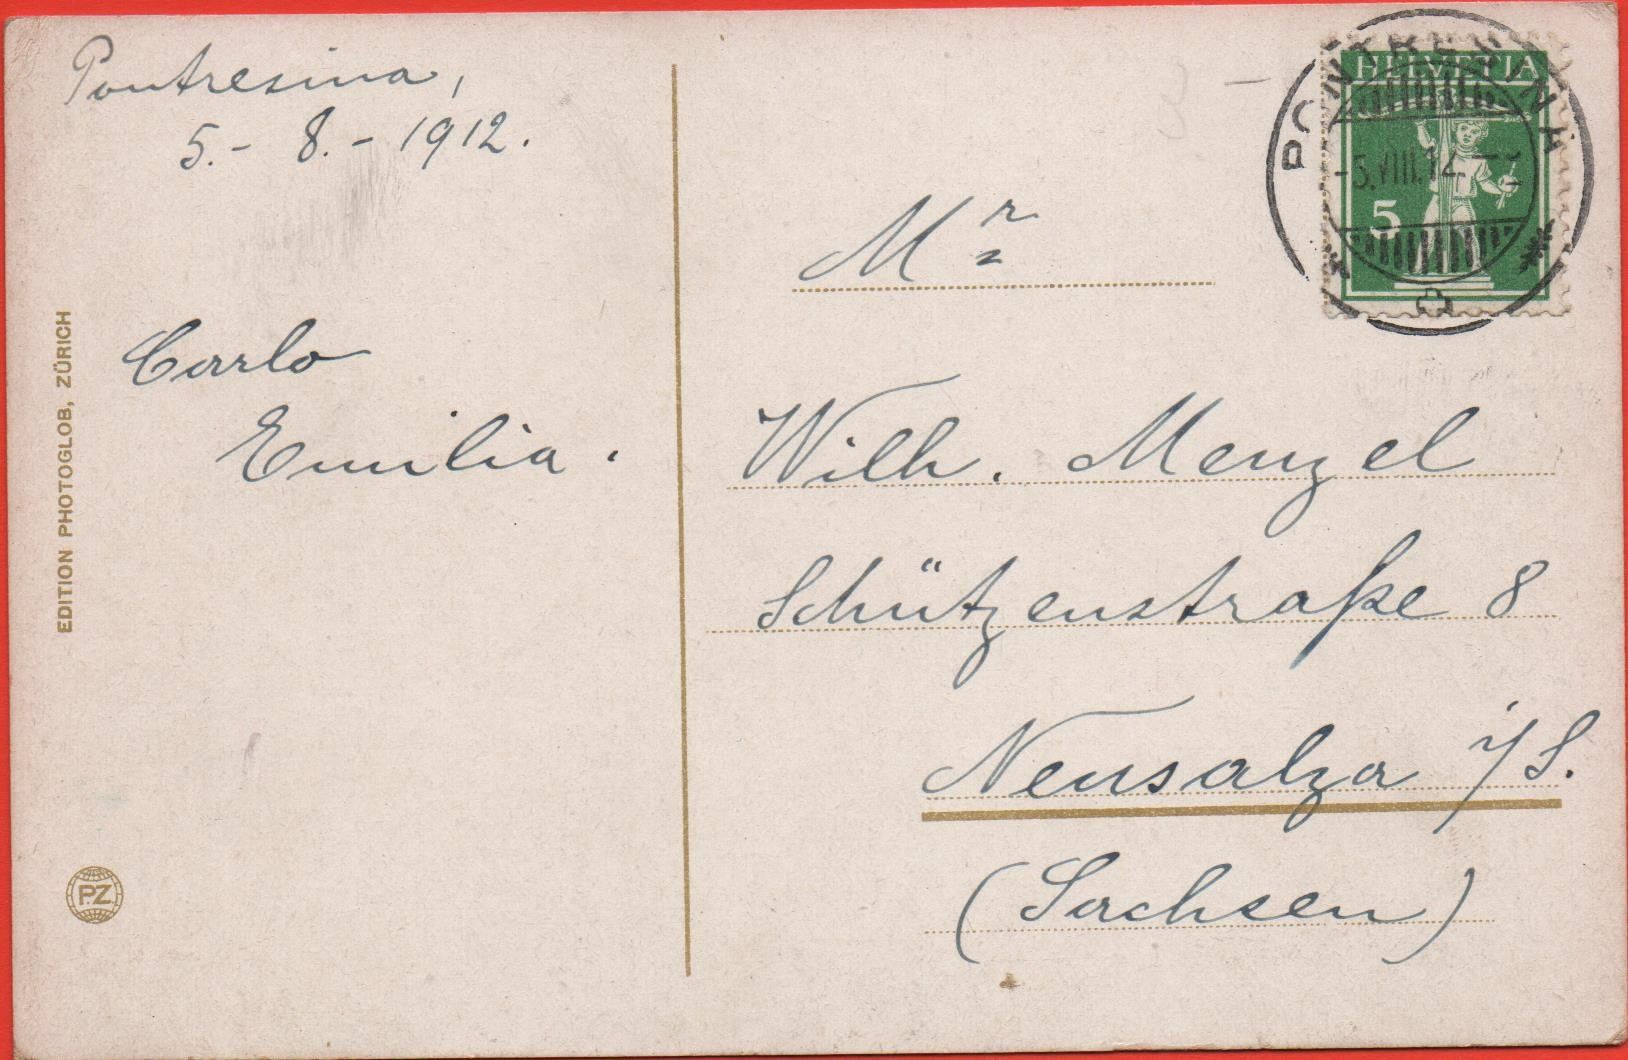 Pontresina,
5.- 8.- 1912.
Carlo
Emilia.
EDITION PHOTOGLOB, ZÜRICH
P.Z.
PONTRESINA
HELVETIA
-5.VIII.12.
5
Mr
Wilh. Menzel
Schützenstraße 8
Neusalza i/S.
(Sachsen)